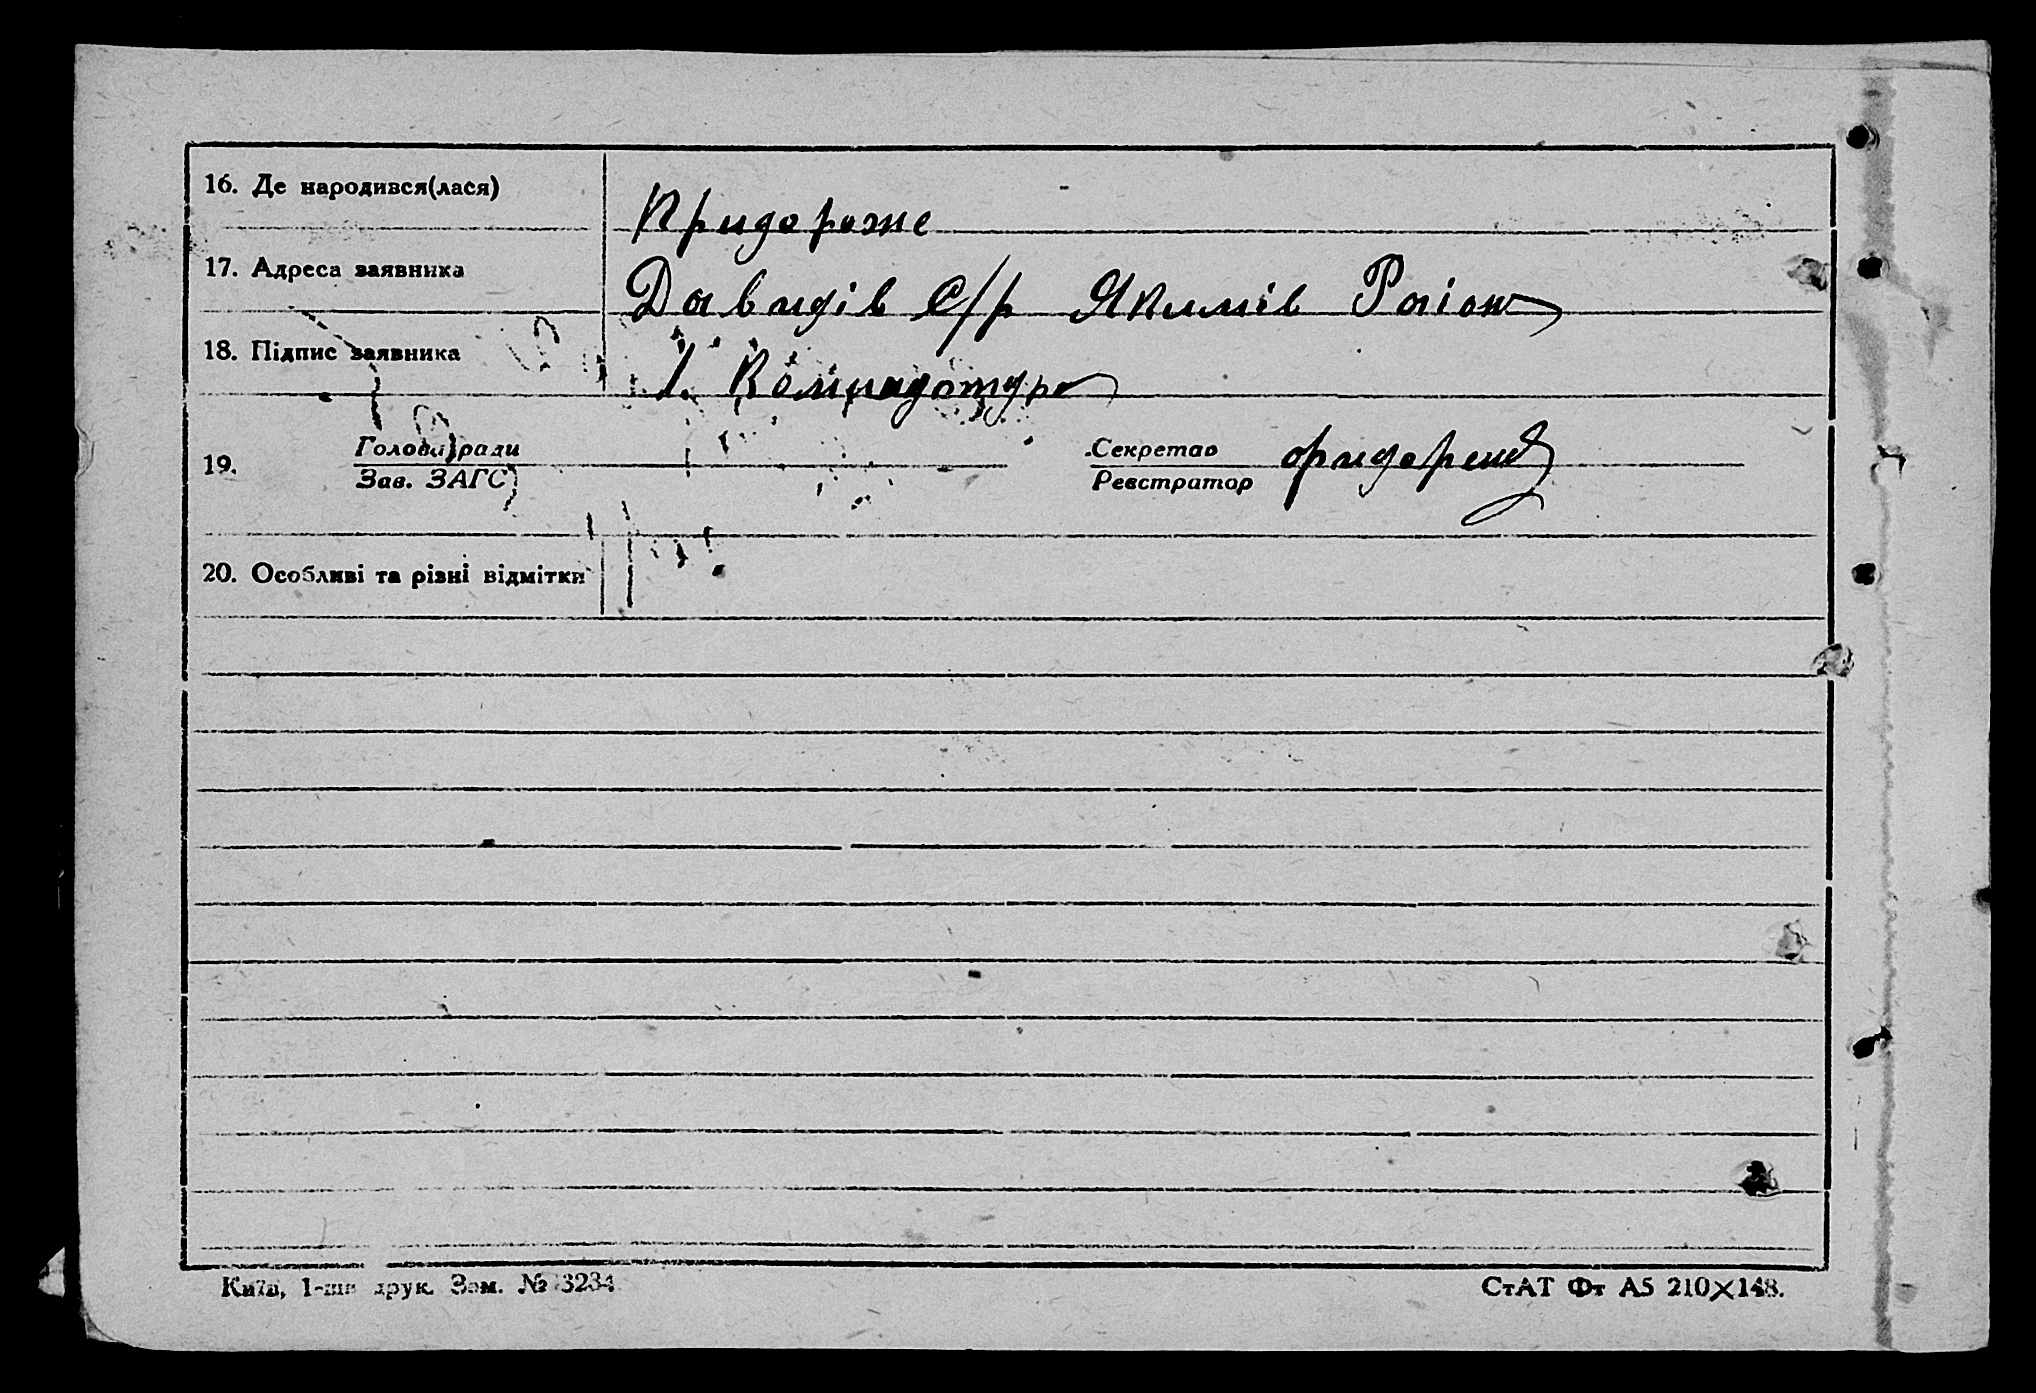 16. Де народився(лася)
Придороже
17. Адреса заявника
Давидів С/р Якимів Раіон
18. Підпис заявника
19.
Голова ради
Зав. ЗАГС
Секретар
Реєстратор
20. Особливі та різні відмітки
Київ, 1-ша друк. Зам. № 3234
СтАТ Фт А5 210×148.